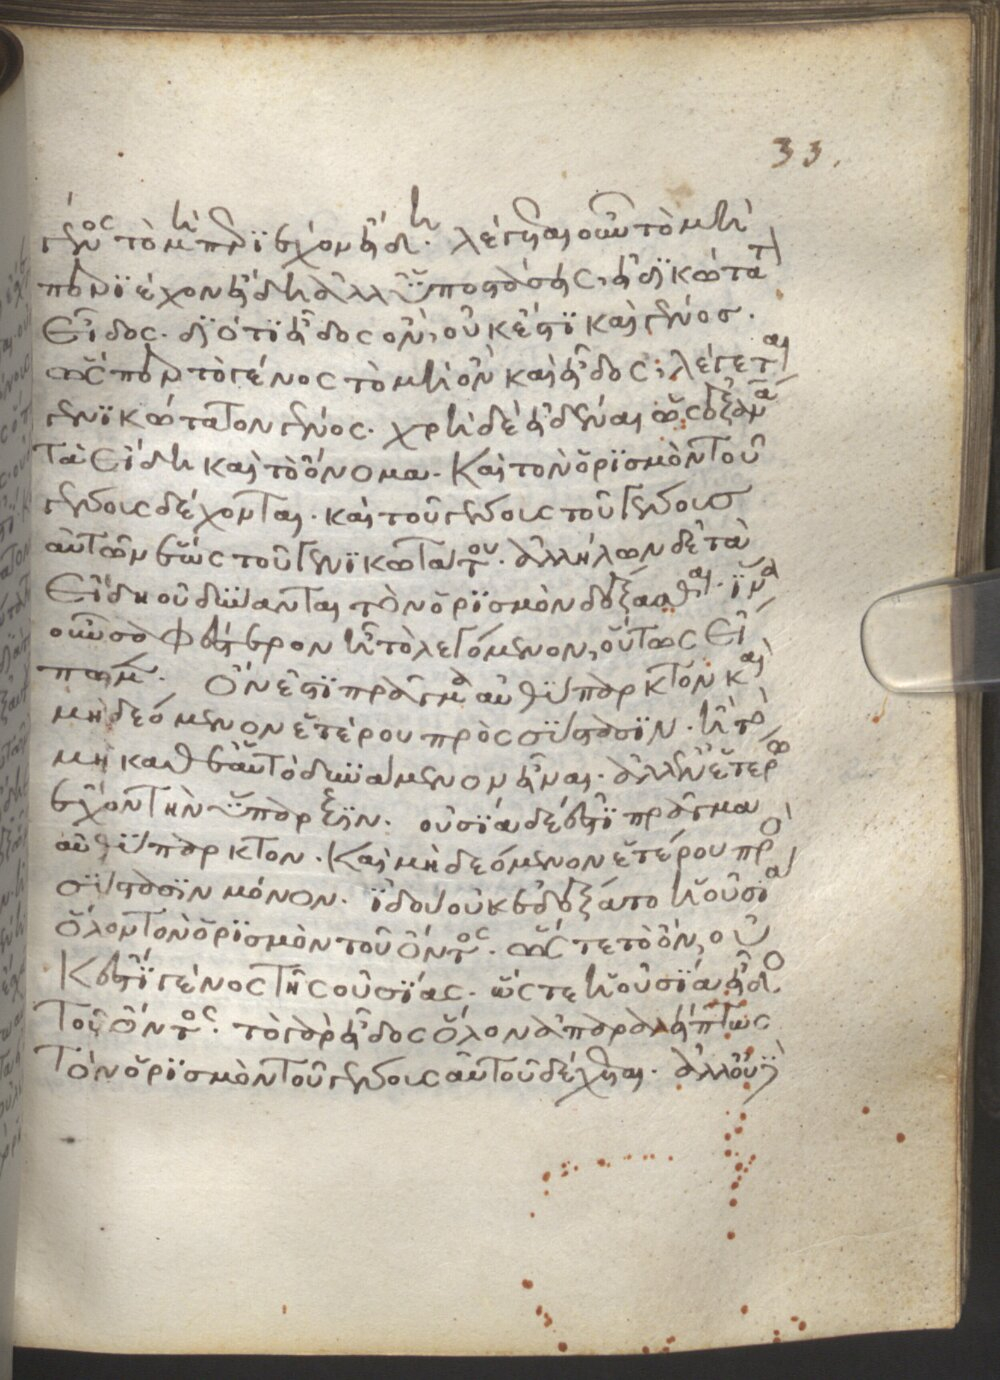 γένος τὸ μὴ περιέχον εἴδη. λέγεται οὖν τὸ μὴ
περιέχον εἴδη ἀλλ' ὑποστάσεις, εἰδικώτατ
εἶδος. διότι εἶδος ὂν, οὐκ ἔστι καὶ γένος.
ὥσπερ τὸ γένος τὸ μὴ ὂν καὶ εἶδος, λέγεται
γενικώτατον γένος. χρὴ δὲ εἰδέναι ὡς
τὰ εἴδη καὶ τὸ ὄνομα. καὶ τὸν ὁρισμὸν τοῦ
γένους δέχονται. καὶ τοῦ γένους τοῦ γένους
αὐτῶν ἕως τοῦ γενικωτάτου. ἀλλήλων δὲ τὰ
εἴδη οὐ δύνανται τὸν ὁρισμὸν δέξασθαι. ἵνα
οὖν σαφέστερον ᾖ τὸ λεγόμενον, οὕτως εἴ
πωμεν. Ὄν ἐστι πρᾶγμα αὐθύπαρκτον καὶ
μὴ δεόμενον ἑτέρου πρὸς σύστασιν. ἢ τὸ
μὴ καθ' ἑαυτὸ δυνάμενον εἶναι. ἀλλ' ἐν ἑτέρω
ἔχον τὴν ὕπαρξιν. οὐσία δέ ἐστι πρᾶγμα
αὐθύπαρκτον. καὶ μὴ δεόμενον ἑτέρου πρὸ
σύστασιν μόνον. ἰδοὺ οὐκ ἐδέξατο ἡ οὐσία
ὅλον τὸν ὁρισμὸν τοῦ ὄντος. ὥστε τὸ ὂν, οὐ
κ ἔστι γένος τῆς οὐσίας. ὥστε ἡ οὐσία εἶδο
τοῦ ὄντος. τὸ γὰρ εἶδος ὅλον ἀπαραλείπτως
τὸν ὁρισμὸν τοῦ γένους αὐτοῦ δέχεται. ἀλλ' οὐ
33.